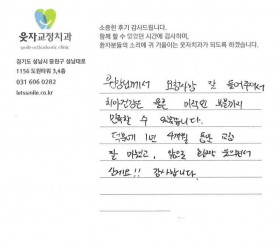 웃자교정치과
smile orthodontic clinic
경기도 성남시 중원구 성남대로
1156 도원타워 3,4층
031 606 0282
letssmile.co.kr
소중한 후기 감사드립니다.
함께 할 수 있었던 시간에 감사하며,
환자분들의 소리에 귀 기울이는 웃자치과가 되도록 하겠습니다.
원장님께서 요청사항 잘 들어주셔서
치아건강은 물론 미적인 부분까지
만족할 수 있었습니다.
덕분에 1년 4개월 동안 교정
잘 마쳤고, 앞으로 활짝 웃으면서
살게요!! 감사합니다.